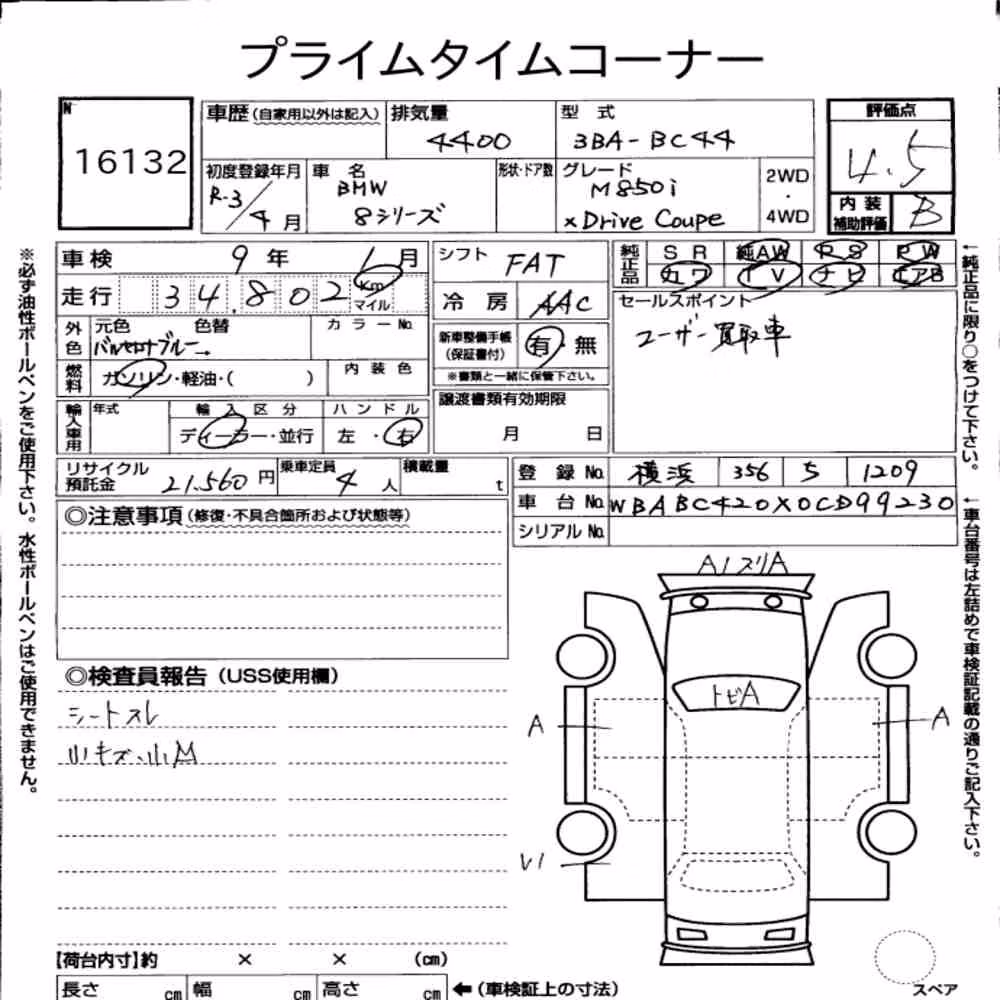 プライムタイムコーナー
N
16132
車歴(自家用以外は記入)
排気量
4400
型 式
3BA-BC44
初度登録年月
R-3/4月
車 名
BMW
8シリーズ
形状・ドア数
グレード
M850i
xDrive Coupe
2WD
・
4WD
評価点
4.5
内 装
補助評価
B
車検 9年 1月
走行 34.802 Km
マイル
外色
元色 色替
バルセロナブルー
カラーNo.
燃料
ガソリン・軽油・( )
内装色
輸入車用
年式
輸入区分
ディーラー・並行
ハンドル
左・右
シフト FAT
冷房 AAC
新車整備手帳
(保証書付)
有・無
※書類と一緒に保管下さい。
譲渡書類有効期限
月 日
純正品
SR 純AW RS PW
カワ TV ナビ エアB
セールスポイント
ユーザー買取車
リサイクル
預託金 21.560円
乗車定員 4人
積載量 t
登録No. 横浜 356 5 1209
車台No. WBABC420X0CD99230
シリアルNo.
◎注意事項(修復・不具合箇所および状態等)
◎検査員報告(USS使用欄)
シートスレ
小キズ・小凹
A1スリA
トビA
A
A
U1
【荷台内寸】約 × × (cm)
長さ cm 幅 cm 高さ cm
←(車検証上の寸法)
スペア
※必ず油性ボールペンをご使用下さい。水性ボールペンはご使用できません。
←純正品に限り○をつけて下さい。
←車台番号は左詰めで車検証記載の通りご記入下さい。